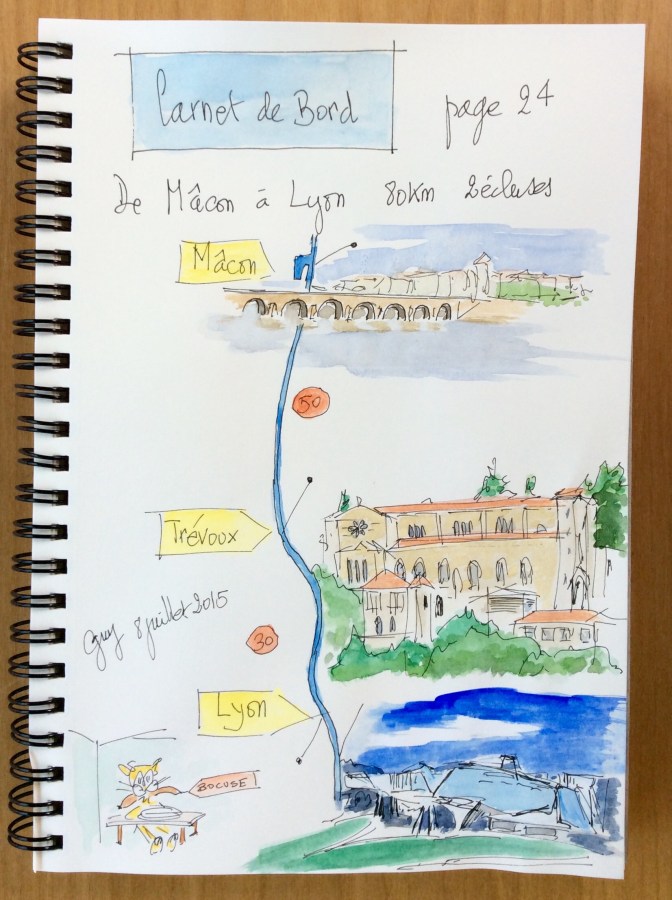 Carnet de Bord
page 24
De Mâcon à Lyon 80Km 2 écluses
Mâcon
50
Trévoux
Guy 8 juillet 2015
30
Lyon
BOCUSE